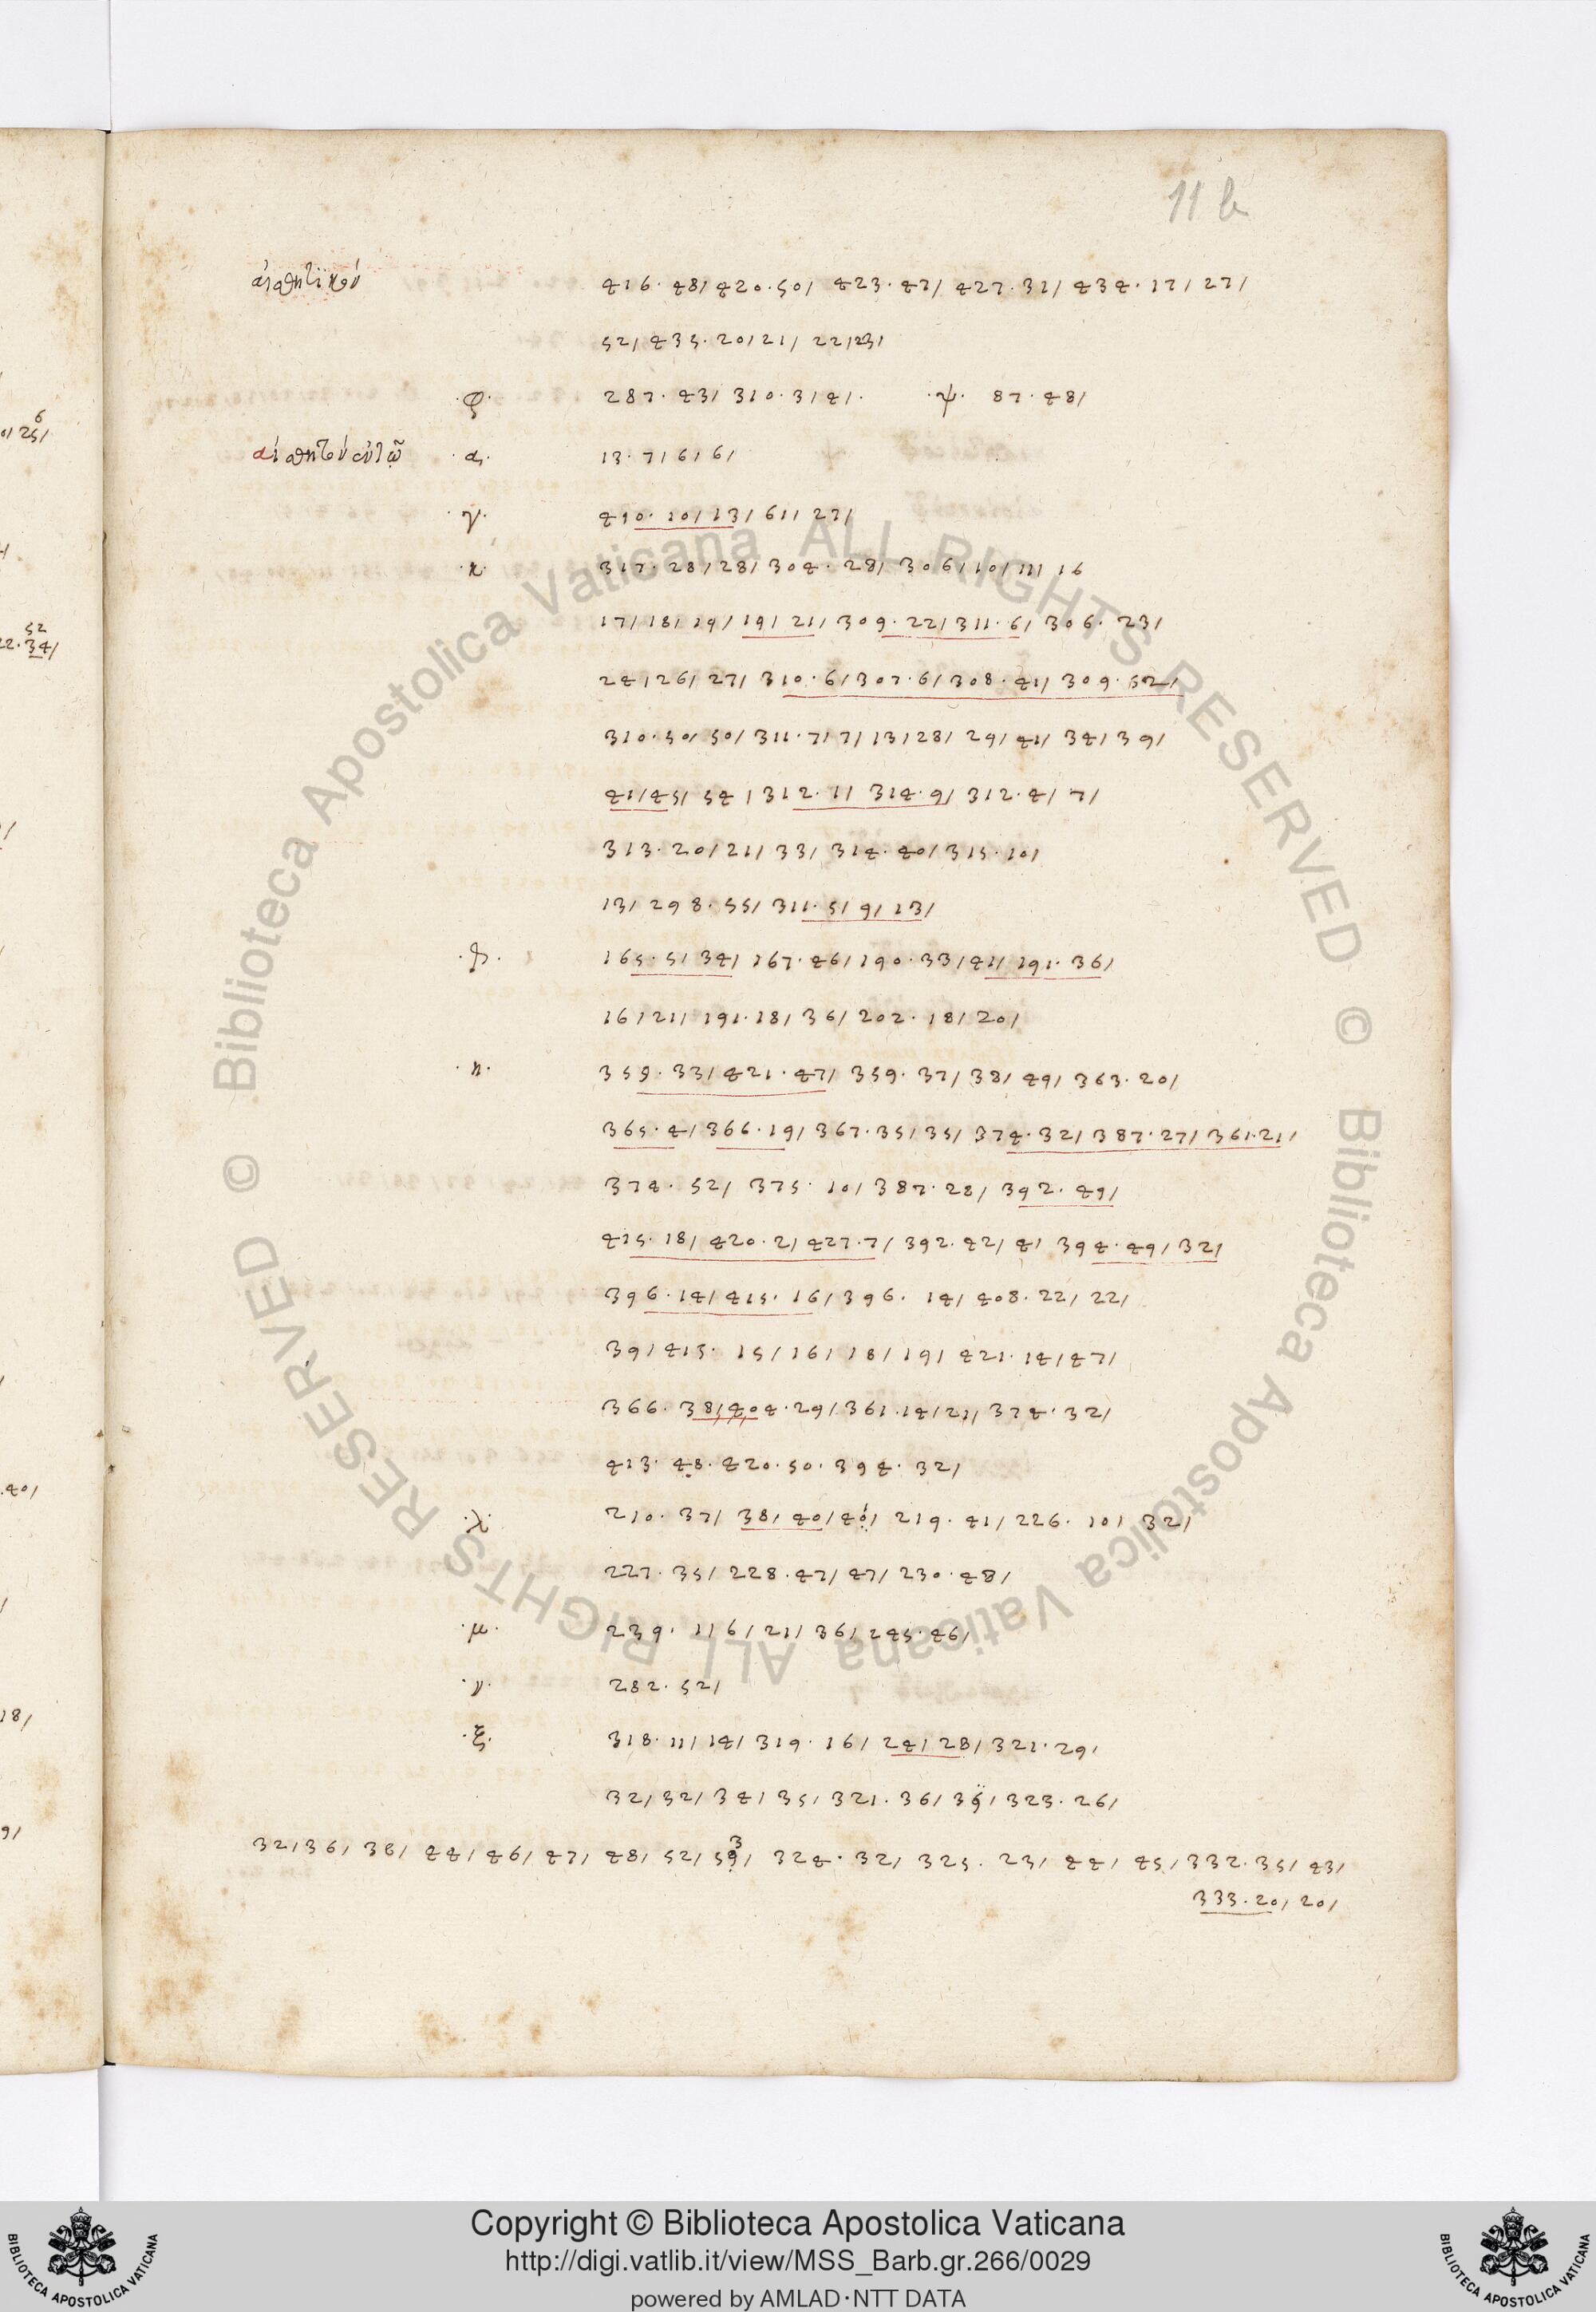 11 b
αἰσθητικοῦ 416 · 48/ 420 · 50/ 423 · 47/ 427 · 31/ 434 · 17/ 27/
52/ 435 · 20/ 21/ 22/ 23/
· φ · 287 · 43/ 310 · 3/ 4/ · · ψ · 87 · 48/
αἰσθητοῦ αὐτῶ · α · 13 · 7/ 6/ 6/
· γ · 410 · 10/ 13/ 61/ 27/
· κ · 317 · 28/ 28/ 304 · 28/ 306/ 10/ 11/ 16
17/ 18/ 19/ 19/ 21/ 309 · 22/ 311 · 6/ 306 · 23/
24/ 26/ 27/ 310 · 6/ 307 · 6/ 308 · 41/ 309 · 52/
310 · 50/ 50/ 311 · 7/ 7/ 13/ 28/ 29/ 41/ 34/ 39/
41/ 45/ 54/ 312 · 1/ 314 · 9/ 312 · 4/ 7/
313 · 20/ 21/ 33/ 314 · 40/ 315 · 10/
13/ 298 · 55/ 311 · 5/ 9/ 13/
165 · 5/ 34/ 167 · 46/ 190 · 33/ 41/ 191 · 36/
16/ 21/ 191 · 18/ 36/ 202 · 18/ 20/
· η · 359 · 33/ 421 · 47/ 359 · 37/ 38/ 49/ 363 · 20/
365 · 4/ 366 · 19/ 367 · 35/ 35/ 374 · 32/ 387 · 27/ 361 · 21/
374 · 52/ 375 · 10/ 387 · 28/ 392 · 49/
415 · 18/ 420 · 2/ 427 · 7/ 392 · 42/ 41 394 · 49/ 32/
396 · 14/ 415 · 16/ 396 · 14/ 408 · 22/ 22/
39/ 415 · 15/ 16/ 18/ 19/ 421 · 14/ 47/
366 · 38/ 404 · 29/ 361 · 14/ 21/ 374 · 32/
413 · 48 · 420 · 50 · 394 · 32/
· λ · 210 · 37/ 38/ 40/ 40/ 219 · 41/ 226 · 10/ 32/
227 · 35/ 228 · 47/ 47/ 230 · 48/
· μ · 239 · 1/ 6/ 21/ 36/ 245 · 46/
· ν · 282 · 52/
· ξ · 318 · 11/ 14/ 319 · 16/ 24/ 28/ 321 · 29/
32/ 32/ 34/ 35/ 321 · 36/ 39/ 323 · 26/
32/ 36/ 38/ 44/ 46/ 47/ 48/ 52/ 59/ 324 · 32/ 325 · 23/ 44/ 45/ 332 · 35/ 43/
333 · 20/ 20/
Copyright © Biblioteca Apostolica Vaticana
http://digi.vatlib.it/view/MSS_Barb.gr.266/0029
powered by AMLAD·NTT DATA